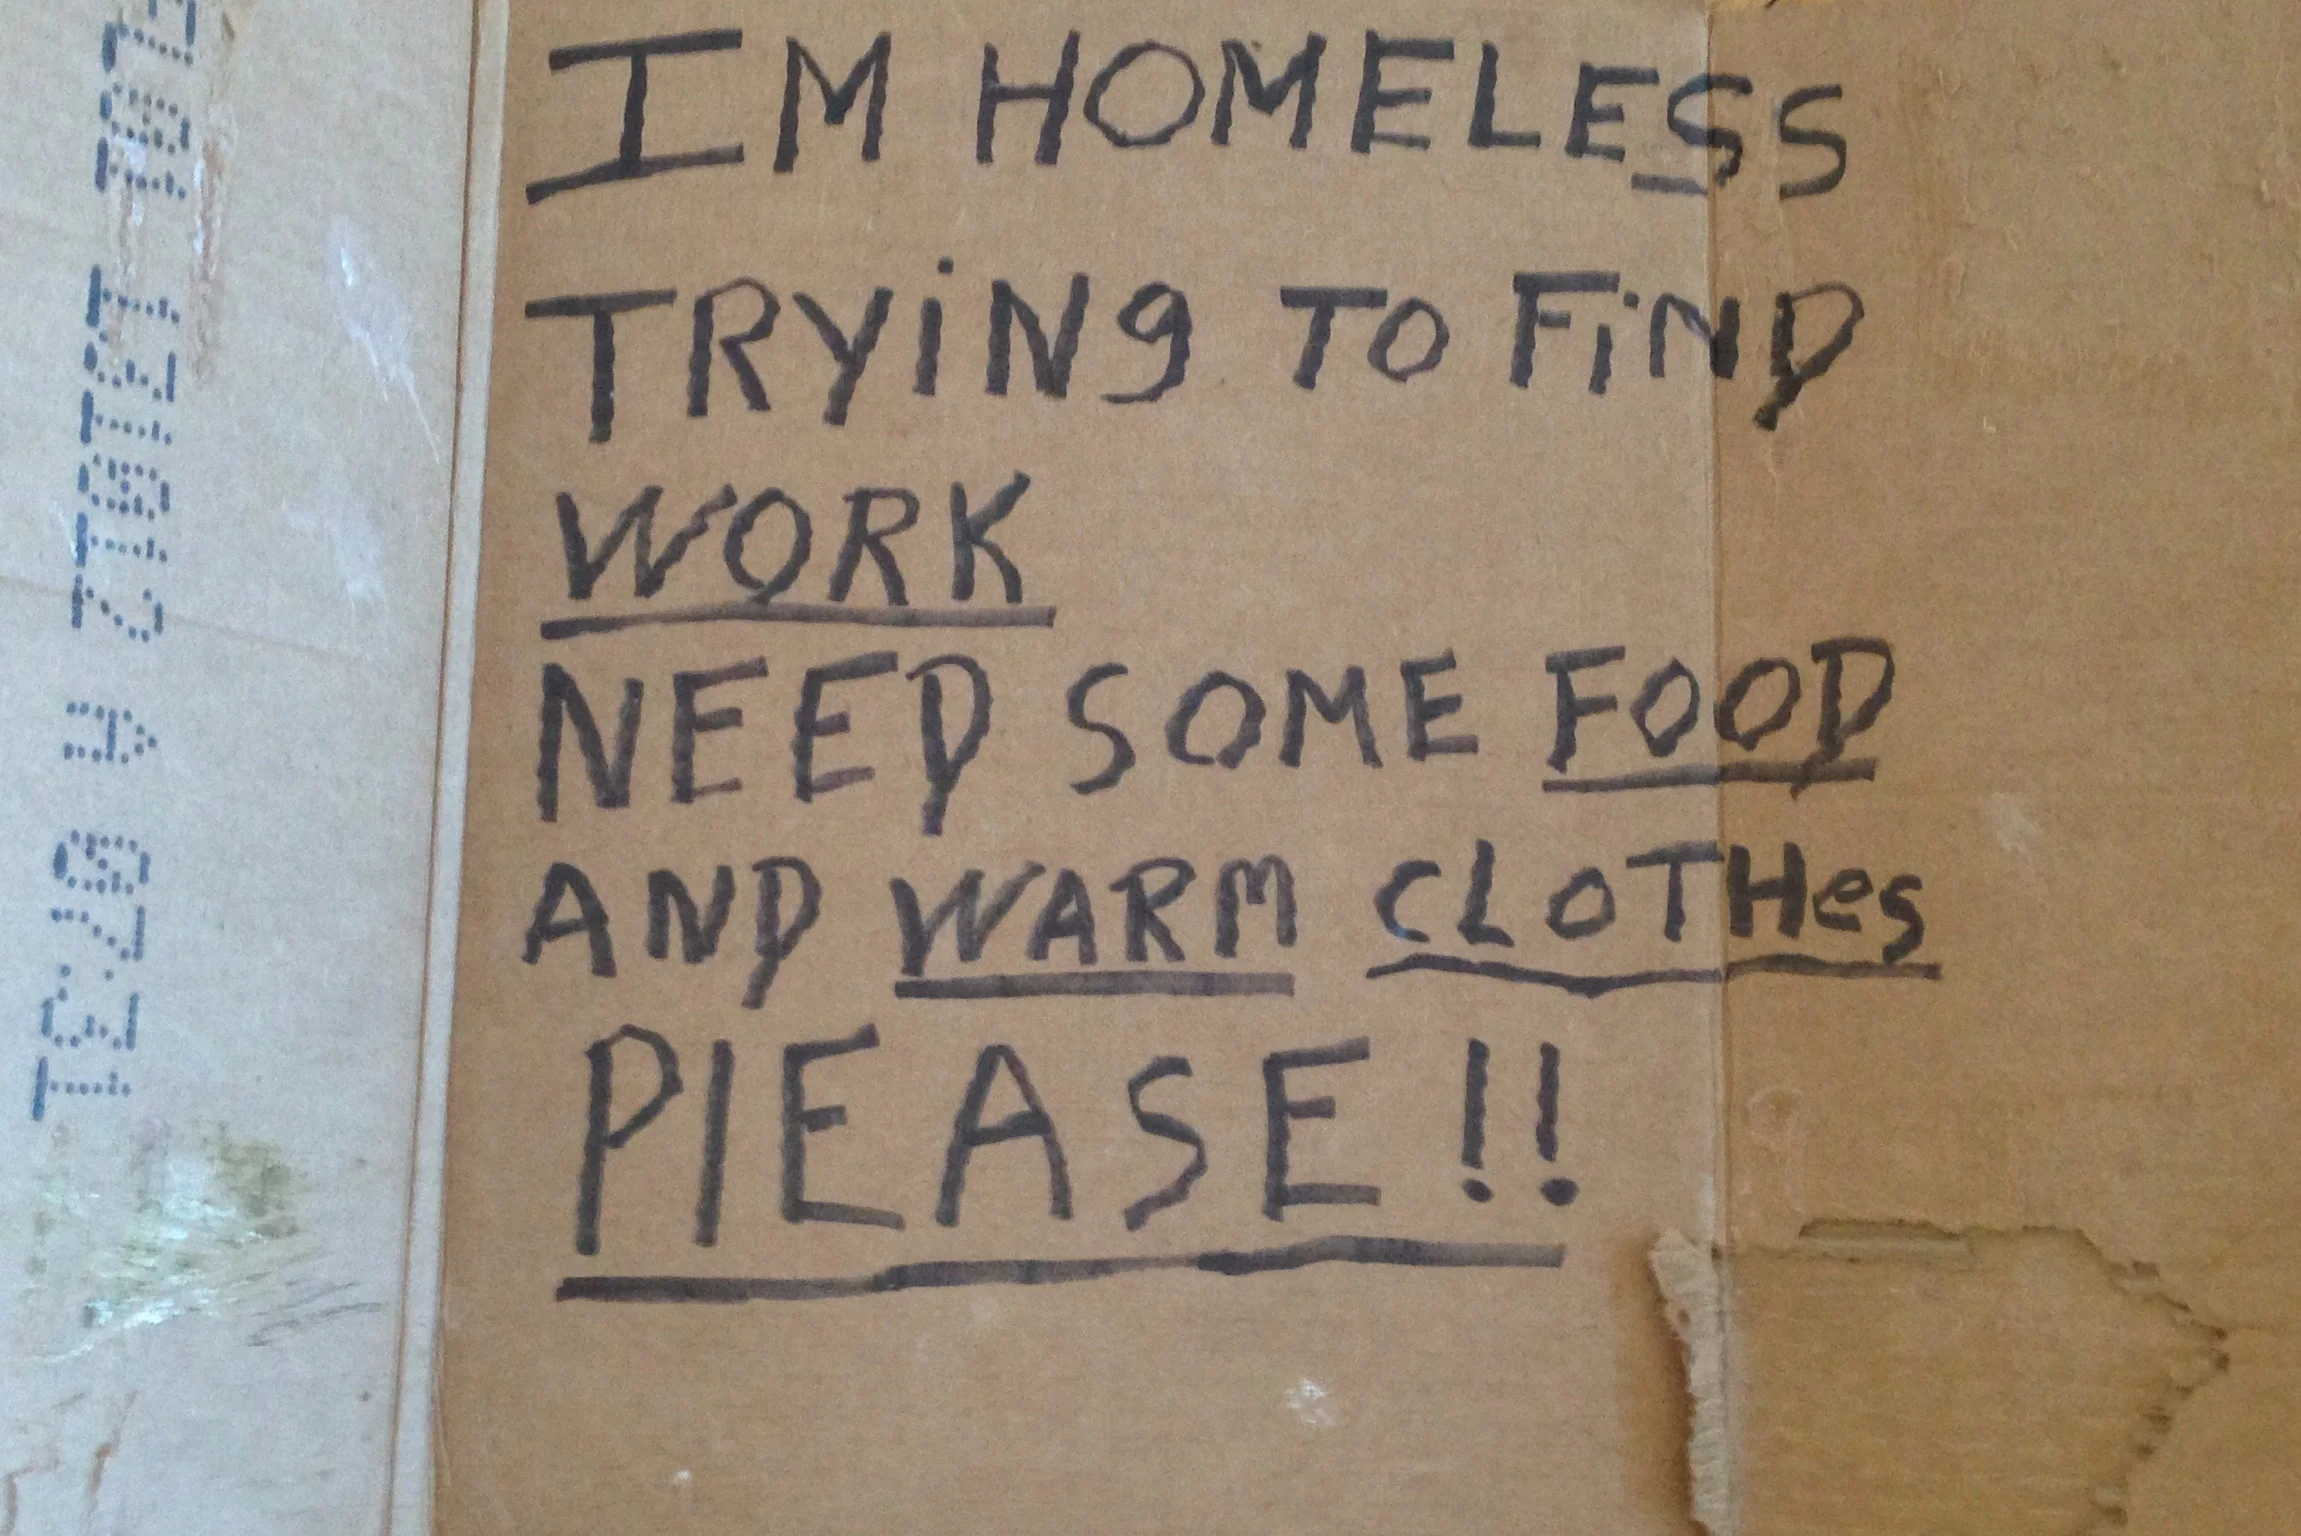 IM HOMELESS
TRYiNg TO FiND
WORK
NEED SOME FOOD
AND WARM CLOTHes
PlEASE!!